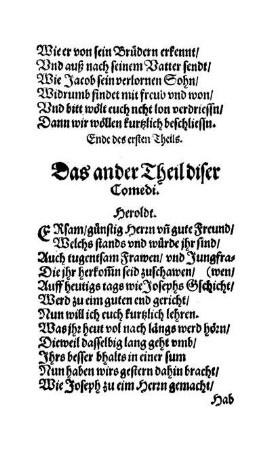 Wie er von sein Brüdern erkennt/
Vnd auß nach seinem Vatter sendt/
Wie Jacob sein verlornen Sohn/
Widrumb findet mit freud vnd won/
Vnd bitt wölt euch ncht lon verdriessn/
Dann wir wöllen kurtzlich beschliessn.
Ende des ersten Theils.
Das ander Theil diser
Comedi.
Heroldt.
ERsam/günstig Herrn vñ gute Freund/
Welchs stands vnd würde jhr sind/
Auch tugentsam Frawen/ vnd Jungfra-
Die jhr herkom̃n seid zuschawen/ (wen/
Auff heutigs tags wie Josephs Gschicht/
Werd zu eim guten end gericht/
Nun will ich euch kurtzlich lehren.
Was jhr heut vol nach längs werd hörn/
Dieweil dasselbig lang geht vmb/
Ihrs besser bhalts in einer sum
Nun haben wirs gestern dahin bracht/
Wie Joseph zu eim Herrn gemacht/
Hab